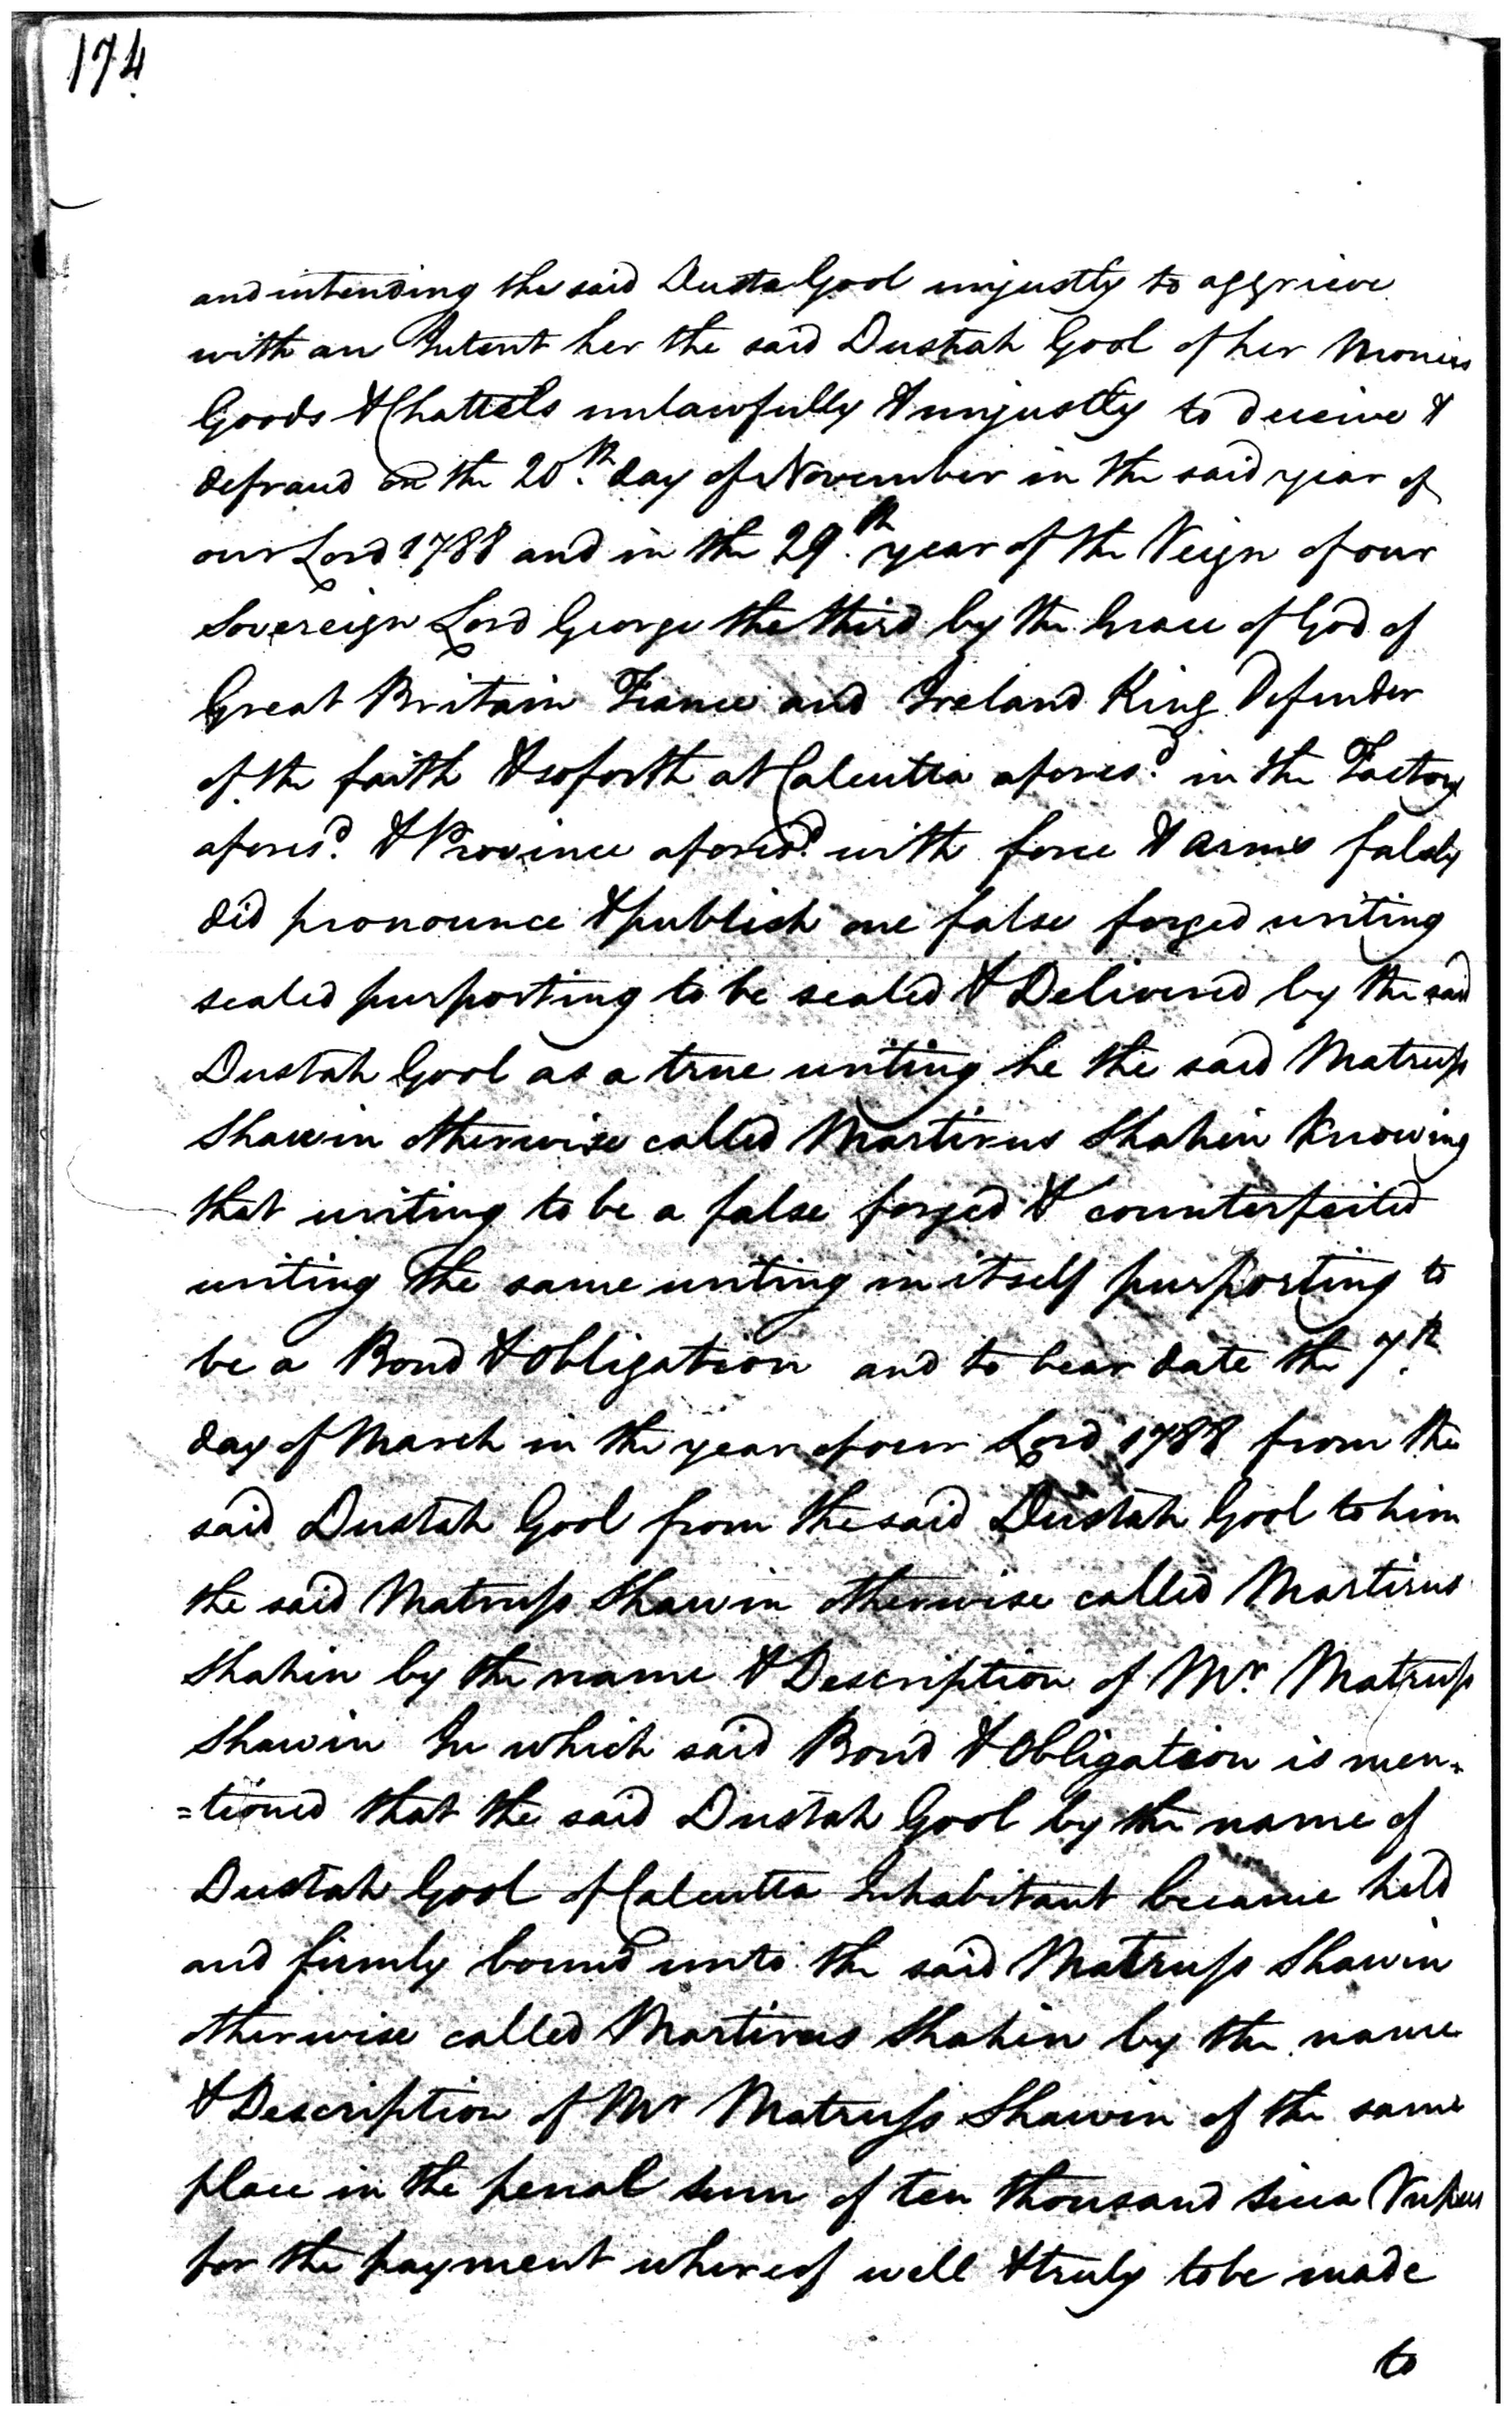 174
and intending the said Dusta Gool unjustly to aggrieve
with an Intent her the said Dustah Gool of her Monies
Goods & Chattels unlawfully & unjustly to deceive &
defraud on the 20th. day of November in the said year of
our Lord 1788 and in the 29th. year of the Reign of our
Sovereign Lord George the third by the Grace of God of
Great Britain France and Ireland King Defender
of the faith & soforth at Calcutta afores.d in the Factory
afores.d & Province afores.d with force & arms falsly
did pronounce & publish one false forged writing
sealed purporting to be sealed & Delivered by the said
Dustah Gool as a true writing he the said Matruss
Shawin otherwise called Martirus Shahin Knowing
that writing to be a false forged & counterfeited
writing the same writing in itself purporting to
be a Bond & Obligation and to bear date the 7th.
day of March in the year of our Lord 1788 from the
said Dustah Gool from the said Dustah Gool to him
the said Matruss Shawin otherwise called Martirus
Shahin by the name & Description of Mr. Matruss
Shawin In which said Bond & Obligation is men=
=tioned that the said Dustah Gool by the name of
Dustah Gool of Calcutta Inhabitant became held
and firmly bound unto the said Matruss Shawin
otherwise called Martirus Shahin by the name
& Description of Mr Matruss Shawin of the same
place in the penal sum of ten thousand Sicca Rupees
for the payment whereof well & truly to be made
to